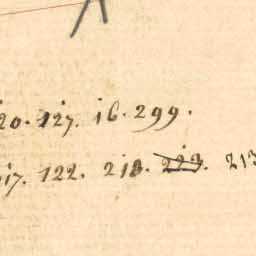 20. 127. 16. 299.
17. 122. 218. 223. 213